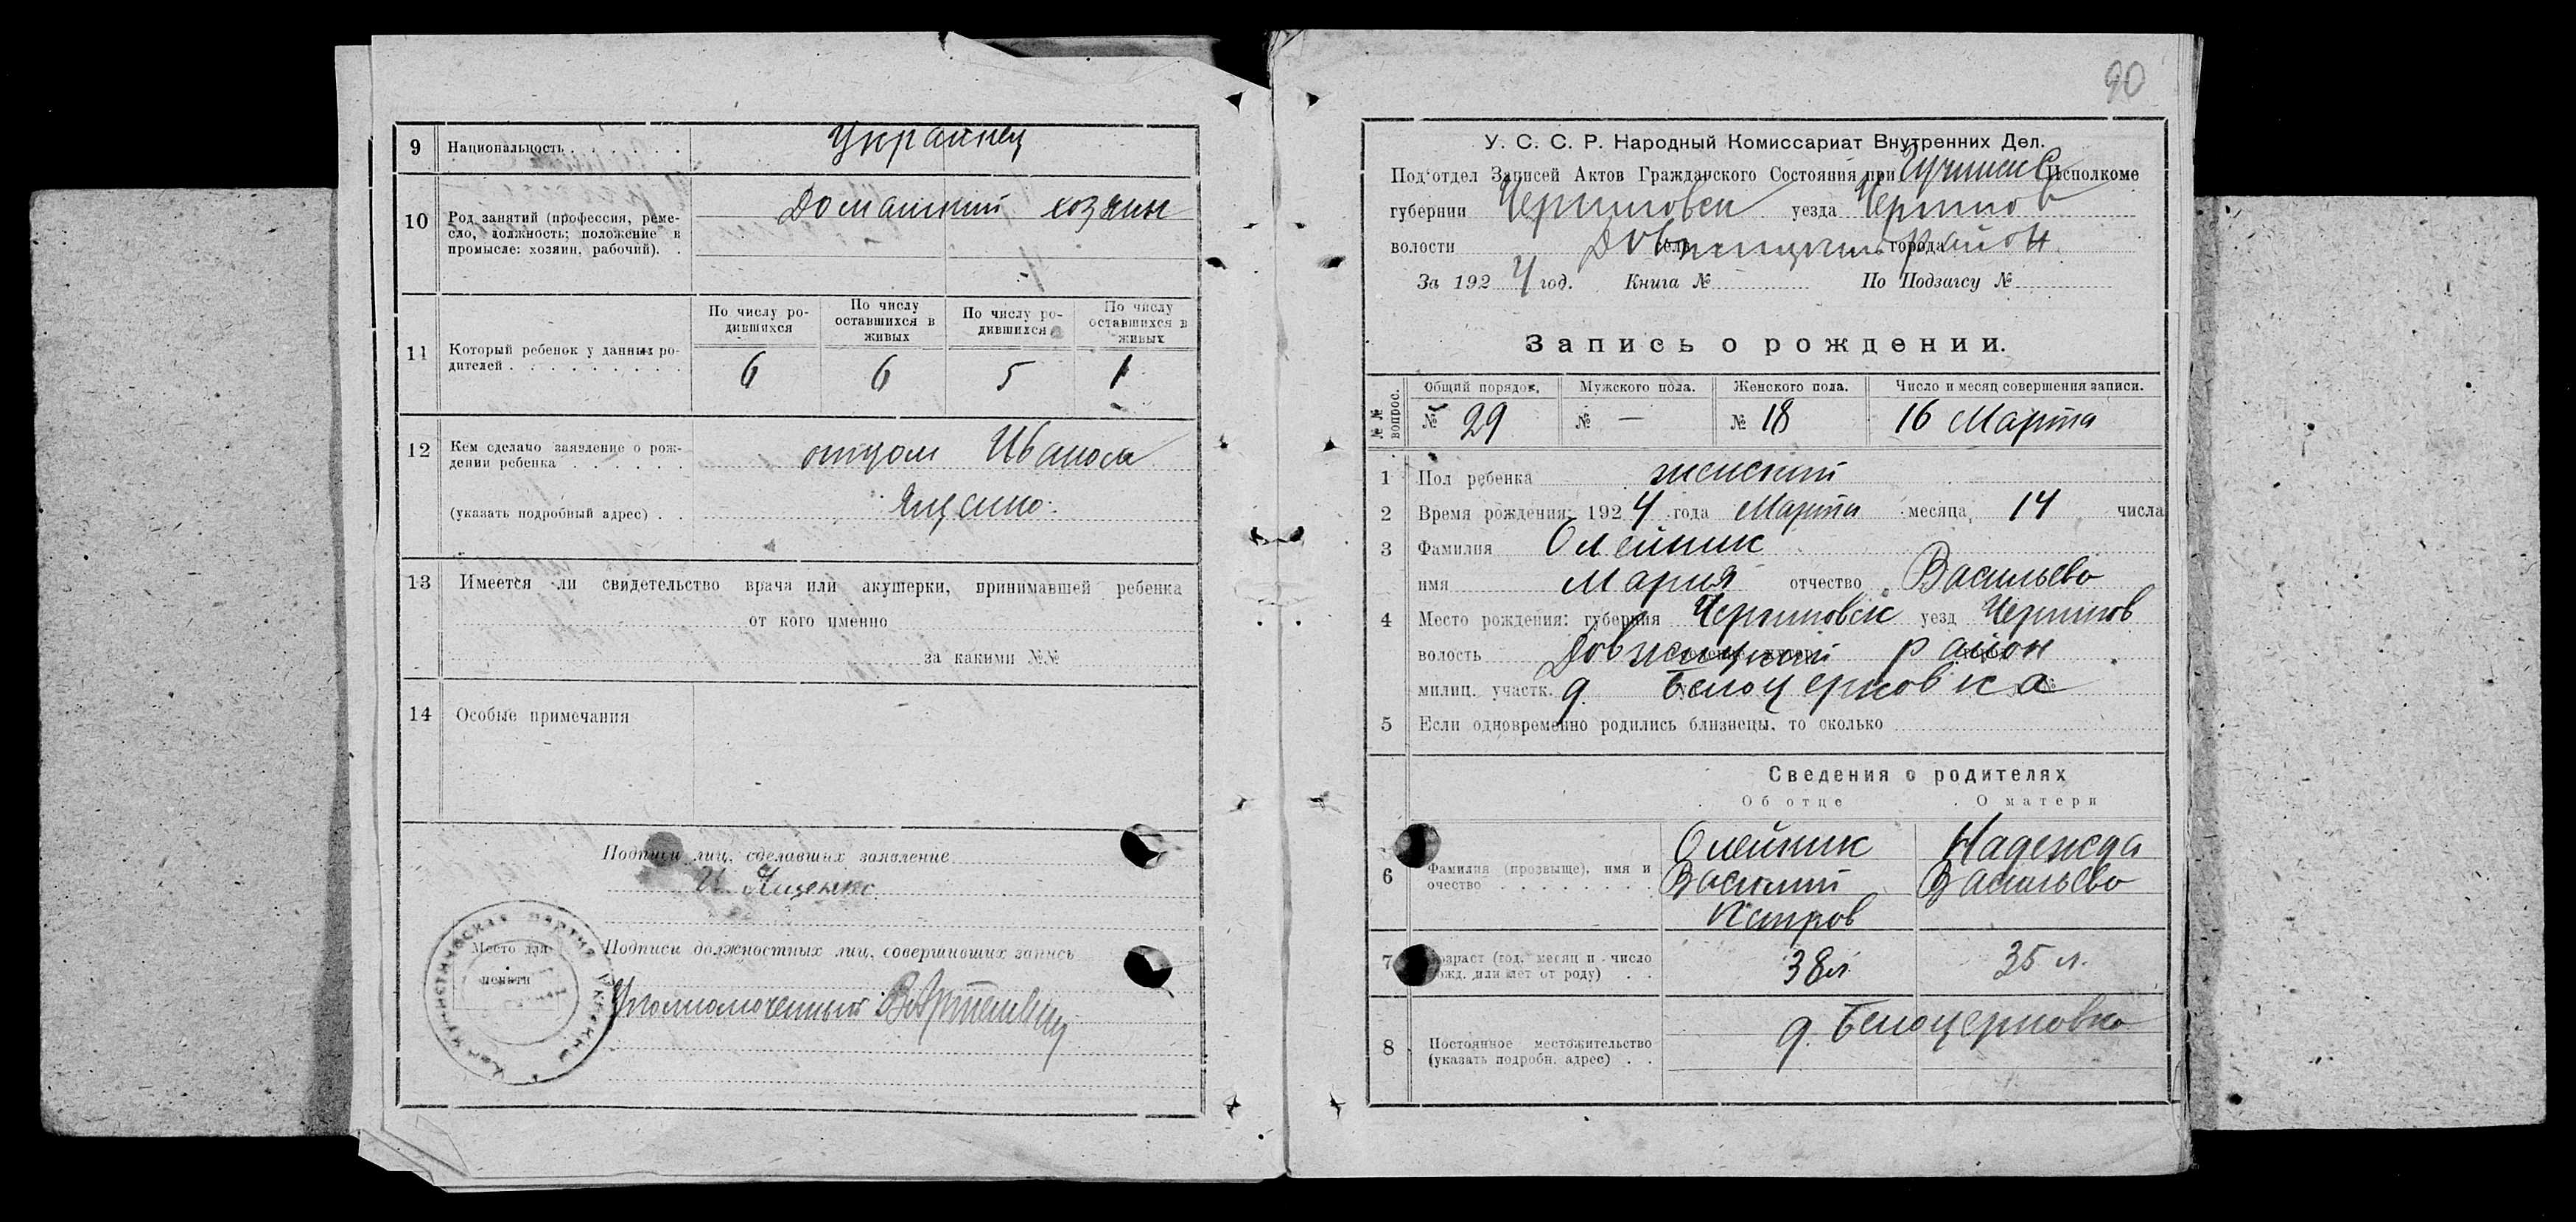 9 Национальность . . . . . . Украинец
10 Род занятий (профессия, реме-
сло, должность; положение в
промысле: хозяин, рабочий). . Домашний хозяин
11 Который ребенок у данных ро-
дителей . . . . . . . . . .
По числу ро-
дившихся
По числу
оставшихся в
живых
По числу ро-
дившихся
По числу
оставшихся в
живых
6 6 5 1
12 Кем сделано заявление о рож-
дении ребенка . . . . . . отцом Иваном
(указать подробный адрес) . . Ященко.
13 Имеется ли свидетельство врача или акушерки, принимавшей ребенка
от кого именно
за какими №№
14 Особые примечания
Подписи лиц, сделавших заявление
И. Ященко
Место для
печати
Подписи должностных лиц, совершивших запись
Уполномоченный
90
У. С. С. Р. Народный Комиссариат Внутренних Дел.
Под'отдел Записей Актов Гражданского Состояния при Исполкоме
губернии Черниговск уезда Чернигов
волости села города район
За 1924 год. Книга № По Подзагсу №
Запись о рождении.
№ № вопрос.
Общий порядок. Мужского пола. Женского пола. Число и месяц совершения записи.
№ 29 № — № 18 16 Марта
1 Пол ребенка женский
2 Время рождения: 1924 года Марта месяца, 14 числа
3 Фамилия Олейник
имя Мария отчество Васильево
4 Место рождения: губерния Черниговск уезд Чернигов
волость Довжицкий район
милиц. участк. д. Белоцерковка
5 Если одновременно родились близнецы, то сколько
Сведения о родителях
Об отце О матери
6 Фамилия (прозвище), имя и
очество . . . . . . . .
Олейник
Василий
Петров
Надежда
Васильево
7 Возраст (год, месяц и число
рожд. или лет от роду) . . 38 л. 35 л.
8 Постоянное местожительство
(указать подробн. адрес) . . д. Белоцерковка